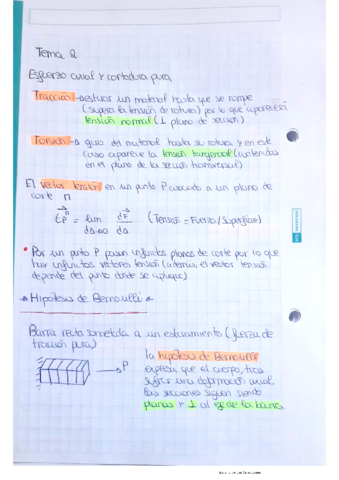 Tema 2
Esfuerzo axial y cortadura pura.
Tracción → estirar un material hasta que se rompe
(supera la tensión de rotura) por lo que aparecerá
tensión normal (⊥ plano de sección)
Torsión → giro del material hasta su rotura y en este
caso aparece la tensión tangencial (contenida
en el plano de la sección transversal)
El vector tensión en un punto P asociado a un plano de
corte n
(Tensión = Fuerza / Superficie)
• Por un punto P pasan infinitos planos de corte por lo que
hay infinitos vectores tensión (además, el vector tensión
depende del punto donde se aplique)
* Hipótesis de Bernoulli *
Barra recta sometida a un estiramiento (fuerza de
tracción pura)
→ P
la hipótesis de Bernoulli
expresa que el cuerpo, tras
sufrir una deformación axial,
las secciones siguen siendo
planas y ⊥ al eje de la barra